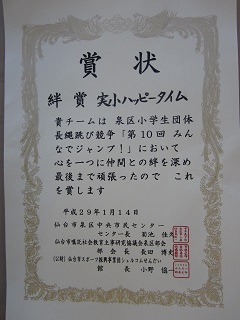 賞状
絆賞 実小ハッピータイム
貴チームは 泉区小学生団体
長縄跳び競争「第10回 みん
なでジャンプ!」において
心を一つに仲間との絆を深め
最後まで頑張ったので これ
を賞します
平成29年1月14日
仙台市泉区中央市民センター
センター長 菊池 佳久
仙台市嘱託社会教育主事研究協議会泉区部会
部会長 長田 博史
(公財)仙台市スポーツ振興事業団シェルコムせんだい
館長 小野 慎一